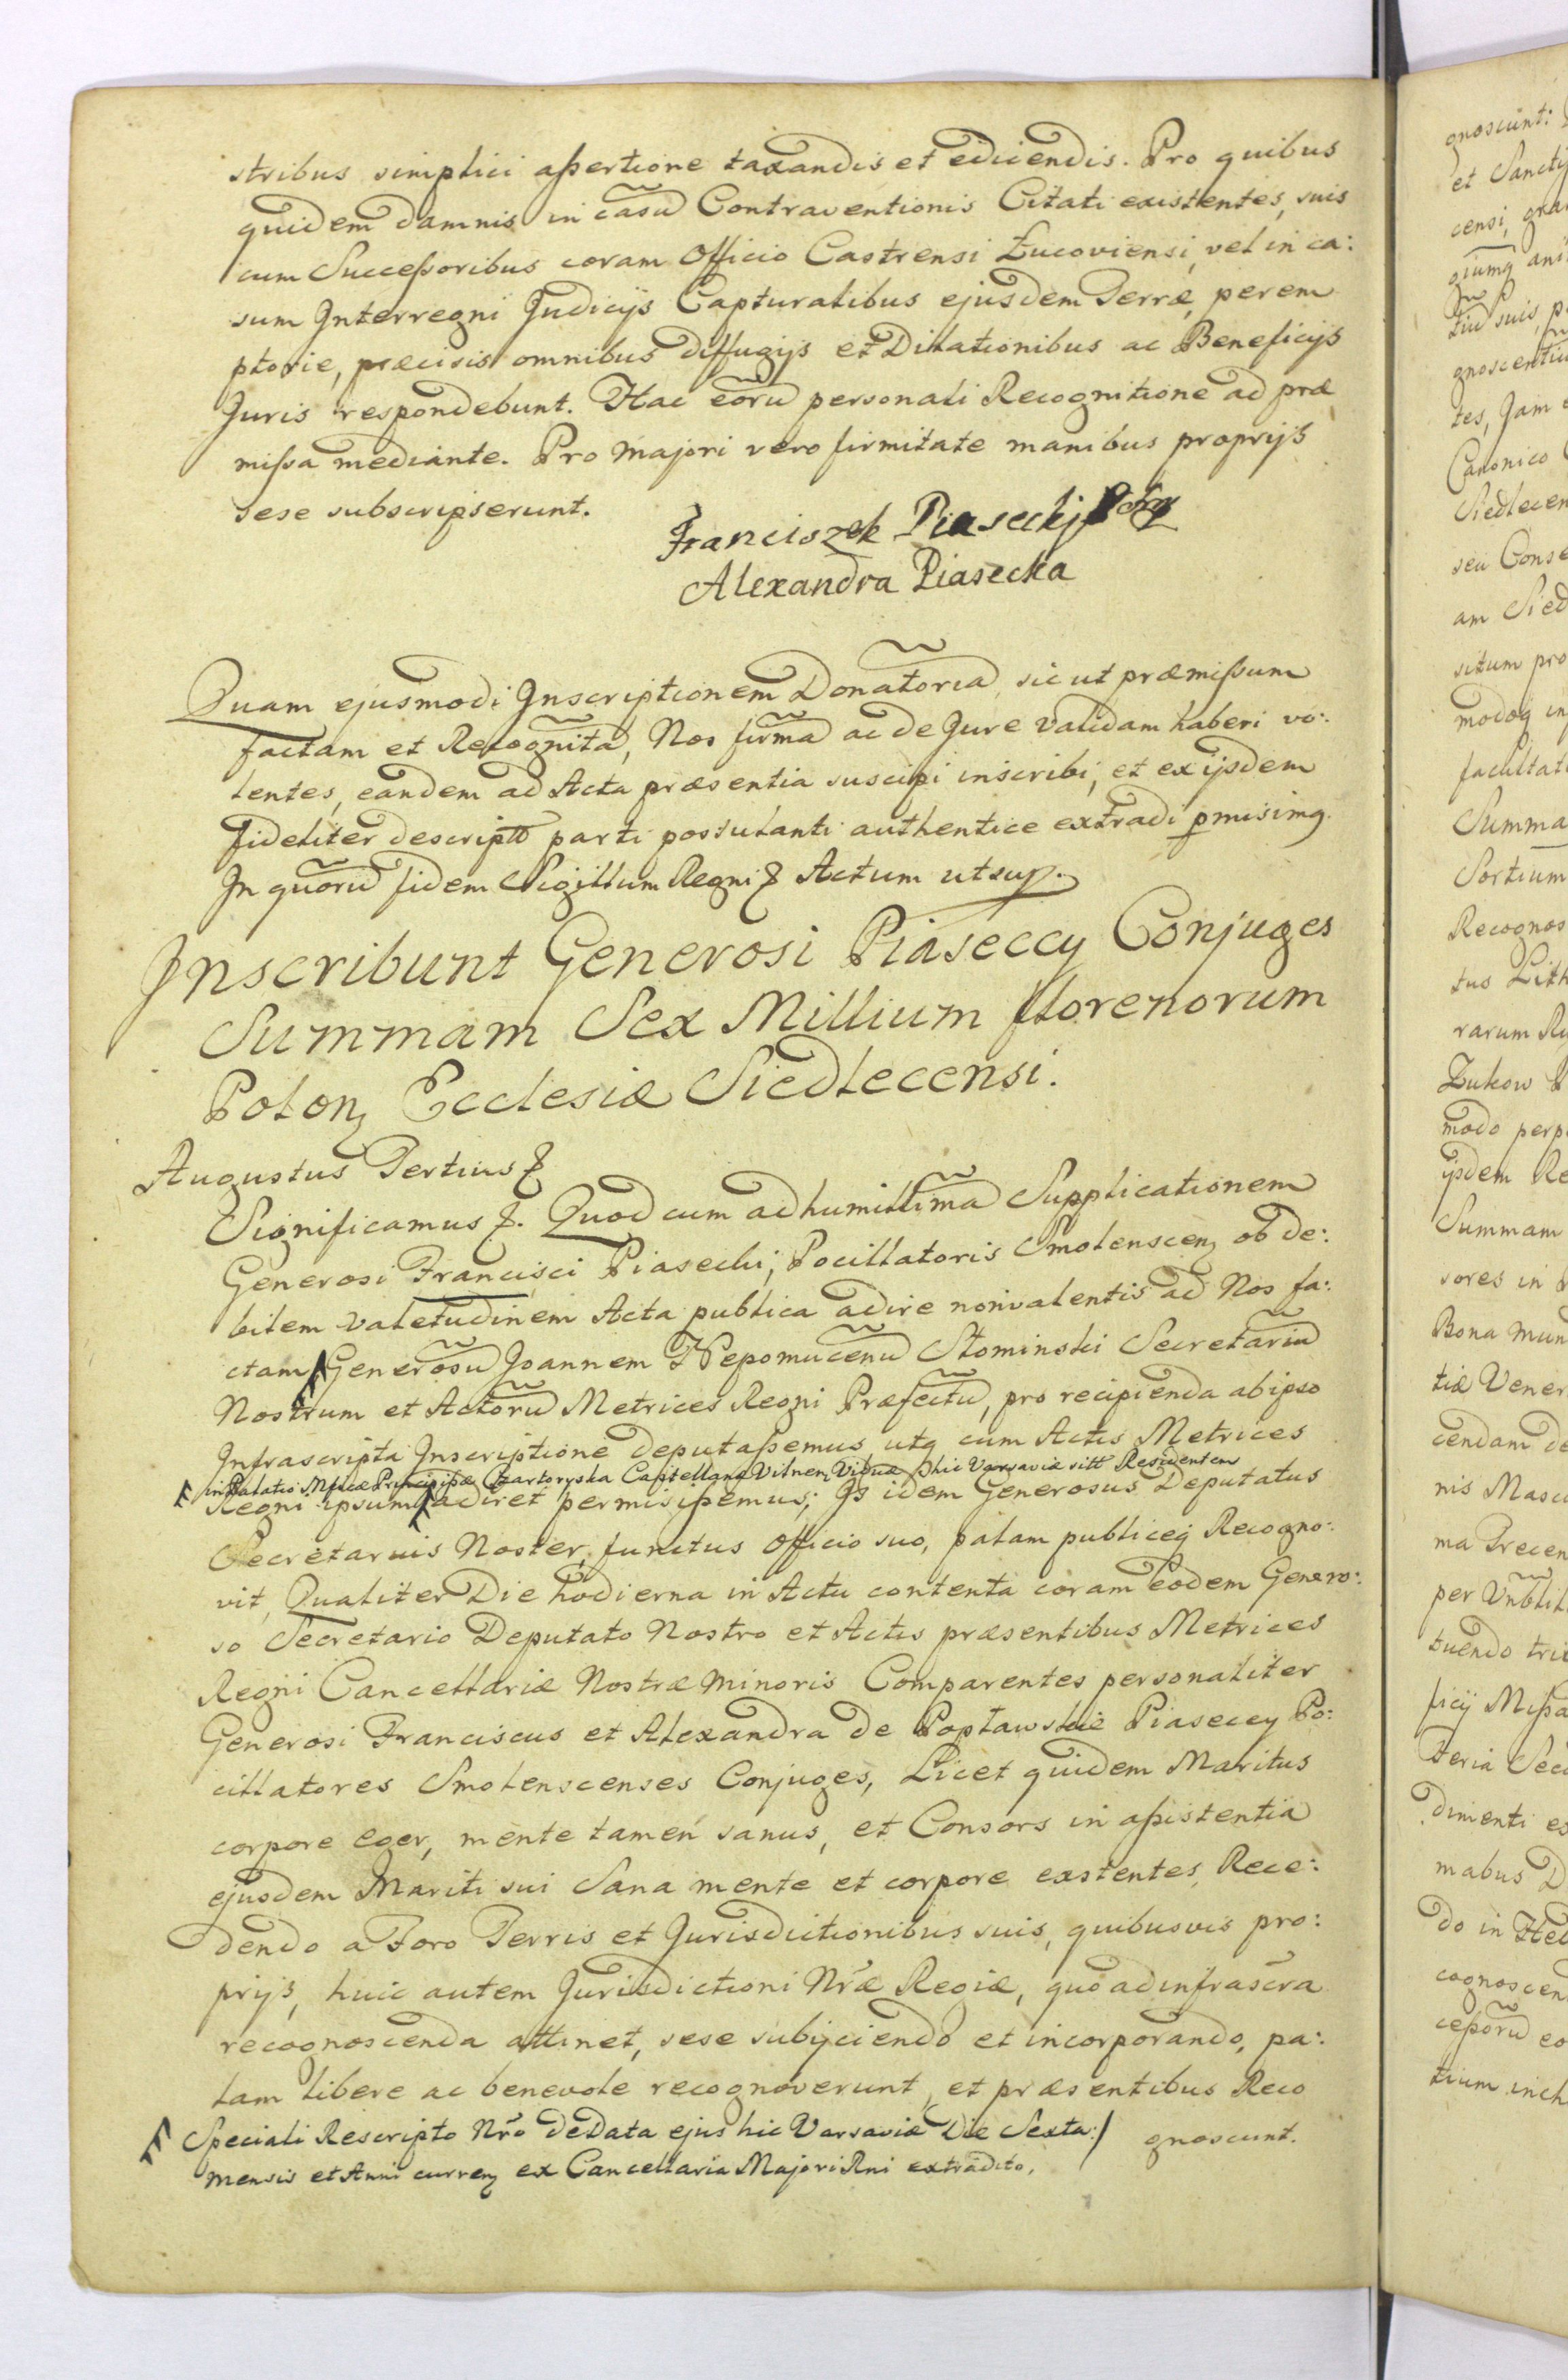 stribus simplici assertione taxandis et edicendis. Pro quibus
quidem damnis in casu Contraventionis Citati existentes, suis
cum Successoribus coram Officio Castrensi Łucoviensi, vel in ca:
sum Interregni Judicijs Capturalibus ejusdem Terræ, perem
ptorie, præcisis omnibus diffugijs et Dilationibus ac Beneficijs
Juris respondebunt. Hac eorũ personali Recognitione ad præ
missa mediante. Pro majori vero firmitate manibus proprijs
sese subscripserunt.
Franciszek Piaseckj
Alexandra Piasecka
Quam ejusmodi Inscriptionem Donatoriã, sicut præmissum
factam et Recognitã, Nos firmã ac de Jure validam haberi vo:
lentes, eandem ad Acta præsentia suscipi inscribi, et ex ijsdem
fideliter descriptã parti postulanti authentice extradi pmisimq.
In quorũ fidem Sigillum Regni Actum ut sup.
Inscribunt Generosi Piaseccy Conjuges
Summam Sex Millium florenorum
Polon, Ecclesiæ Siedlecensi.
Augustus Tertius
Significamus. Quod cum ad humillimã Supplicationem
Generosi Francisci Piasecki, Pocillatoris Smolenscen, ob de:
bilem valetudinem Acta publica adire non valentis ad Nos fa:
ctam Generosũ Joannem Nepomucenũ Słominski Secretariũ
Nostrum et Actorũ Metrices Regni Præfectũ, pro recipienda ab ipso
Infrascripta Inscriptione deputassemus, utq cum Actis Metrices
in Palatio Mficæ Principissæ Czartoryska Castellanæ Vilnen, Viduæ hic Varsaviæ sitt Residentem
Regni ipsum adiret permisissemus; Is idem Generosus Deputatus
Secretarius Noster, functus officio suo, palam publiceq Recogno:
vit, Qualiter Die hodierna in Actu contenta coram eodem Genero:
so Secretario Deputato Nostro et Actis præsentibus Metrices
Regni Cancellariæ Nostræ Minoris Comparentes personaliter
Generosi Franciscus et Alexandra de Popławskie Piaseccy Po:
cillatores Smolenscenses Conjuges, Licet quidem Maritus
corpore eger, mente tamen sanus, et Consors in assistentia
ejusdem Mariti sui Sana mente et corpore existentes, Rece:
dendo a Foro Terris et Jurisdictionibus suis, quibusvis pro:
prijs, huic autem Jurisdictioni Nræ Regiæ, quo ad infrascra
recognoscenda attinet, sese subijciendo et incorporando, pa:
lam libere ac benevole recognoverunt, et præsentibus Reco
gnoscunt.
Speciali Rescripto Nro de Data ejus hic Varsaviæ Die Sexta:/
mensis et Anni curren, ex Cancellaria Majori Rni extradito.
gnoscunt:
et Sancty
censi, gra
tiũ suis, p
gnoscentiũ
tes, Jam
Canonico
Siedlecen
seu Conse
am Sied
situm pro
modoq in
facultat
Summa
Sortium
Recognos
tus Lith
rarum Ry
Łukow
modo perp
ijsdem Re
Summam
sores in
Bona mun
tiæ Vener
cendam de
nis Mascu
ma Trecen
per
tuendo tri
ficij Missa
Feria Secu
dimenti es
mabus D
do in
cognoscen
cessorũ eo
tium inch